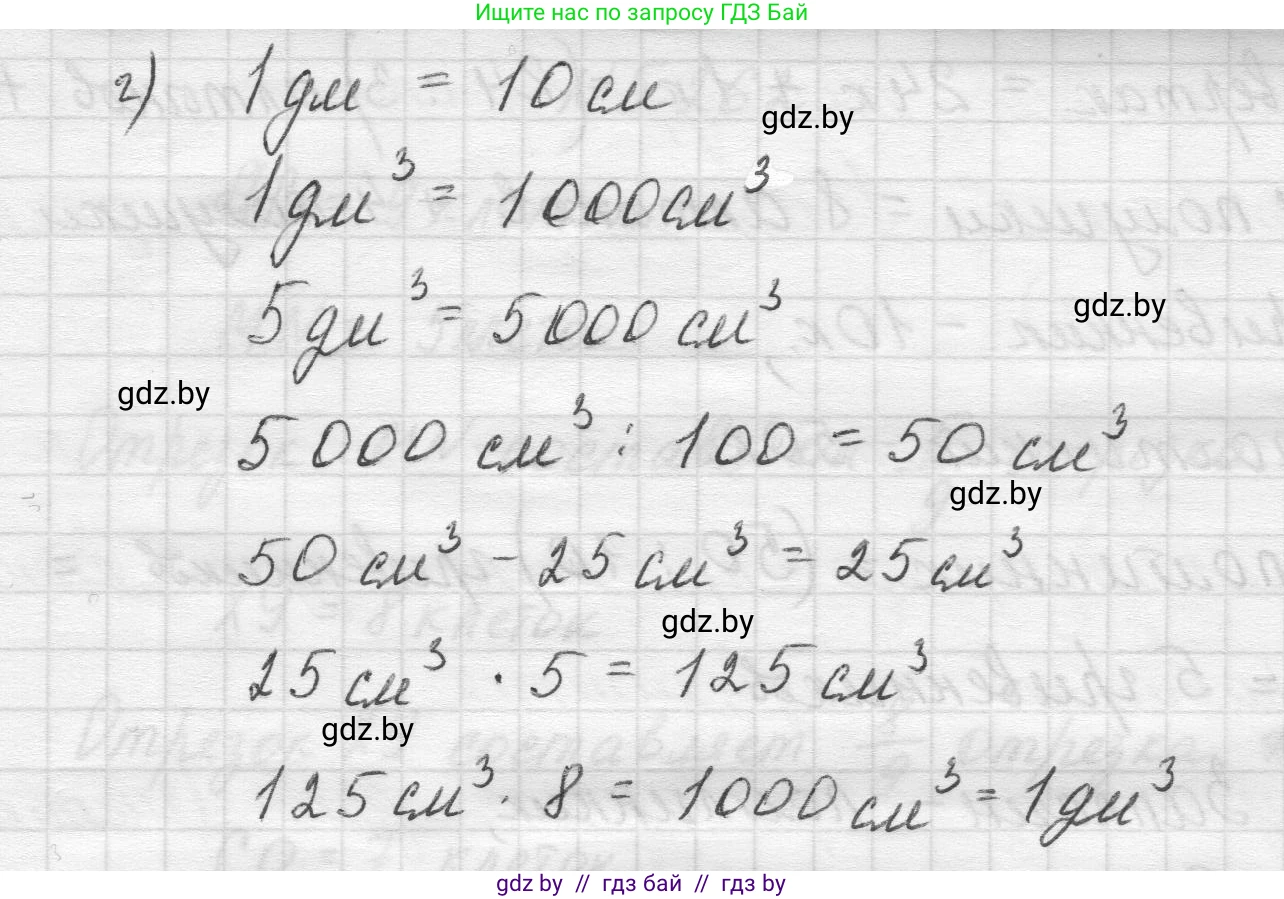 Ищите нас по запросу ГДЗ Бай
г) 1 дм = 10 см
gdz.by
1 дм³ = 1000 см³
5 дм³ = 5000 см³
gdz.by
gdz.by
5000 см³ : 100 = 50 см³
gdz.by
50 см³ - 25 см³ = 25 см³
gdz.by
25 см³ · 5 = 125 см³
gdz.by
125 см³ · 8 = 1000 см³ = 1 дм³
gdz by // гдз бай // гдз by